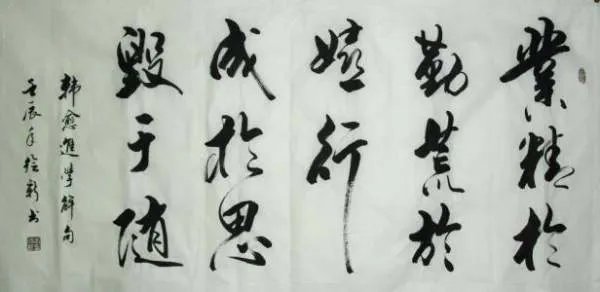 業精於
勤荒於
嬉行
成於思
毁于随
韩愈進学解句
壬辰年 书